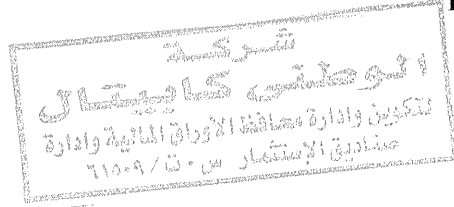 شركة
الوطنى كابيتال
لتكوين وادارة محافظ الأوراق المالية وادارة
صناديق الإستثمار س ٠ ت / ٦١٥٠٩